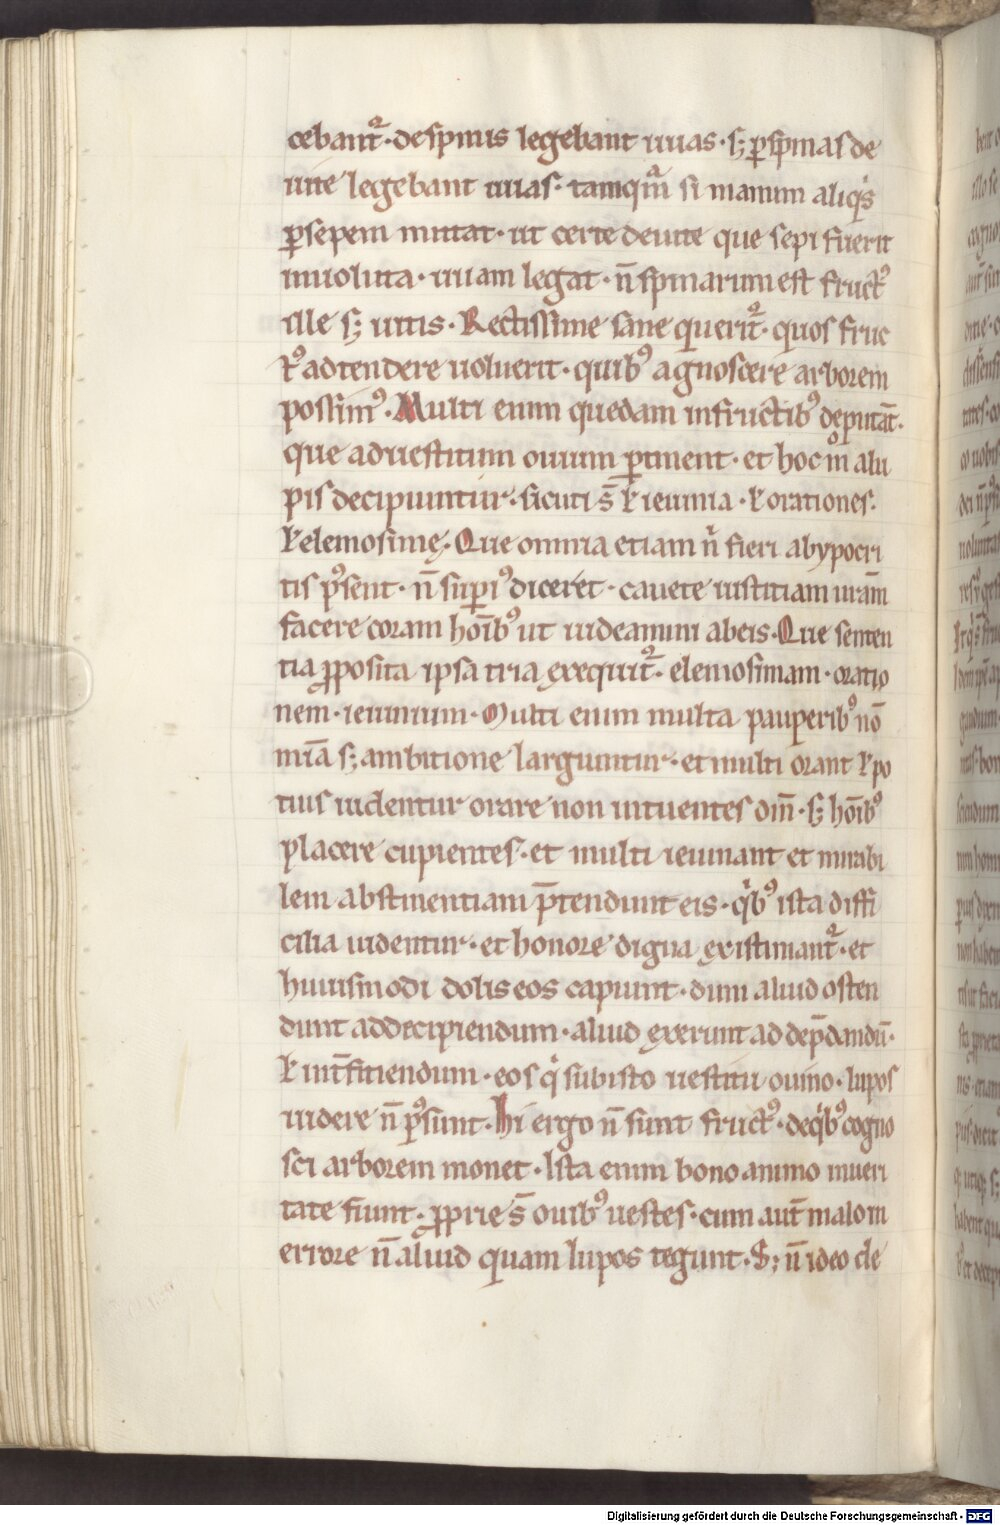 cebant᷑· de spinis legebant uuas· s; ꝑ spinas de
uite legebant uuas· tamqm̄ si manum aliqͥs
ꝑ sepem mittat· ut certe deuite que sepi fuerit
inuoluta· uuam legat· n̄ spinarum est fructꝰ
ille s; uitis· Rectissime sane querit᷑· quos fruc
tꝰ adtendere uoluerit· quibꝰ agnoscere arborem
possimꝰ· Multi enim quedam infructibꝰ deputāt·
que aduestitum ouium ꝑtinent· et hoc mͦ alu
pis decipiuntur· sicuti s̄ ł ieiunia· ł orationes·
ł elemosinę; Que omnia etiam nͥ fieri abypocri
tis pꝰsent· n̄ suꝑiꝰ diceret· cauete iustitiam urām
facere coram hoībꝰ ut uideamini abeis· Que senten
tia ꝓposita ipsa tria exequit᷑· elemosinam· oratio
nem· ieiunium· Multi enim multa pauperibꝰ nō
mīa s; ambitione largiuntur· et multi orant ł po
tius uidentur orare non intuentes dm̄· s; hoībꝰ
placere cupientes· et multi ieiunant et mirabi
lem abstinentiam p̄tendunt eis· qͥbꝰ ista diffi
cilia uidentur· et honore digna existimant᷑· et
huiusmodi dolis eos capiunt· dum aliud osten
dunt addecipiendum· aliud exerunt ad dep̄dandū·
ł int̄fitiendum· eos qͥ subisto uestitu ouino· lupos
uidere n̄ pꝰsunt· Hi ergo n̄ sunt fructꝰ· deqͥbꝰ cogno
sci arborem monet· Ista enim bono animo inueri
tate fiunt· ꝓprie s̄ ouibꝰ uestes· cum aut̄ malo in
errore n̄ aliud quam lupos tegunt· S; n̄ ideo de
Digitalisierung gefördert durch die Deutsche Forschungsgemeinschaft - DFG